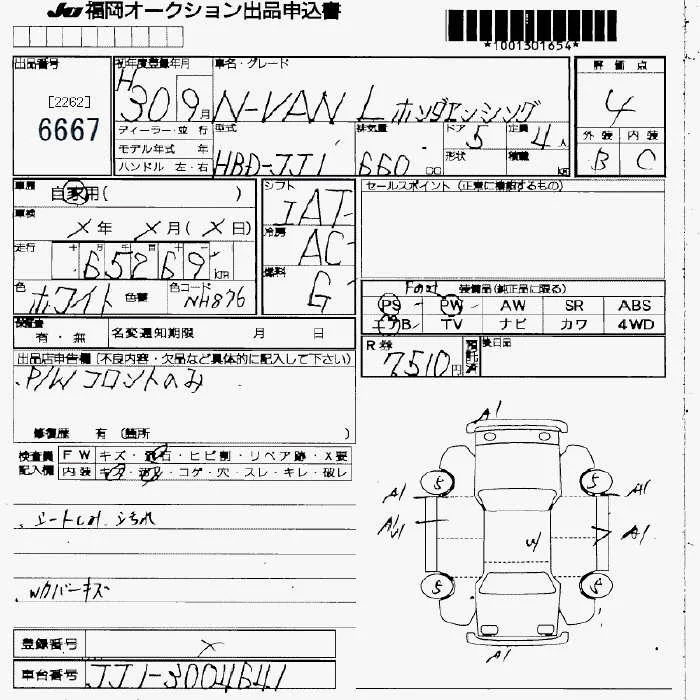 JU 福岡オークション出品申込書
*1001301654*
出品番号
[2262]
6667
初年度登録年月
H 30 9月
車名・グレード
N-VAN L ホンダセンシング
評価点
4
外装 内装
B C
ディーラー・並行
モデル年式 年
ハンドル 左・右
型式
HBD-JJ1
排気量
660 cc
ドア 5
形状
定員 4人
積載 kg
車歴
自家用( )
車検
X年 X月(X日)
走行
十 万 千 百 十
65269 km
色
ホワイト
色替
色コード
NH876
シフト
IAT
冷房
AC
燃料
G
セールスポイント (正常に機能するもの)
装備品(純正品に限る)
Front
PS PW AW SR ABS
エアB TV ナビ カワ 4WD
保証書
有・無
名変通知期限 月 日
R券
7510円
預託済
後日品
出品店申告欄 (不良内容・欠品など具体的に記入して下さい)
P/W フロントのみ
修復歴 有 (箇所 )
検査員記入欄
FW キズ・飛石・ヒビ割・リペア跡・X要
内装 キズ・汚れ・コゲ・穴・スレ・キレ・破レ
W/カバーキズ
A1
5 5
A1 A1
A1
W
5 5
A1
登録番号 X
車台番号 JJ1-3004641